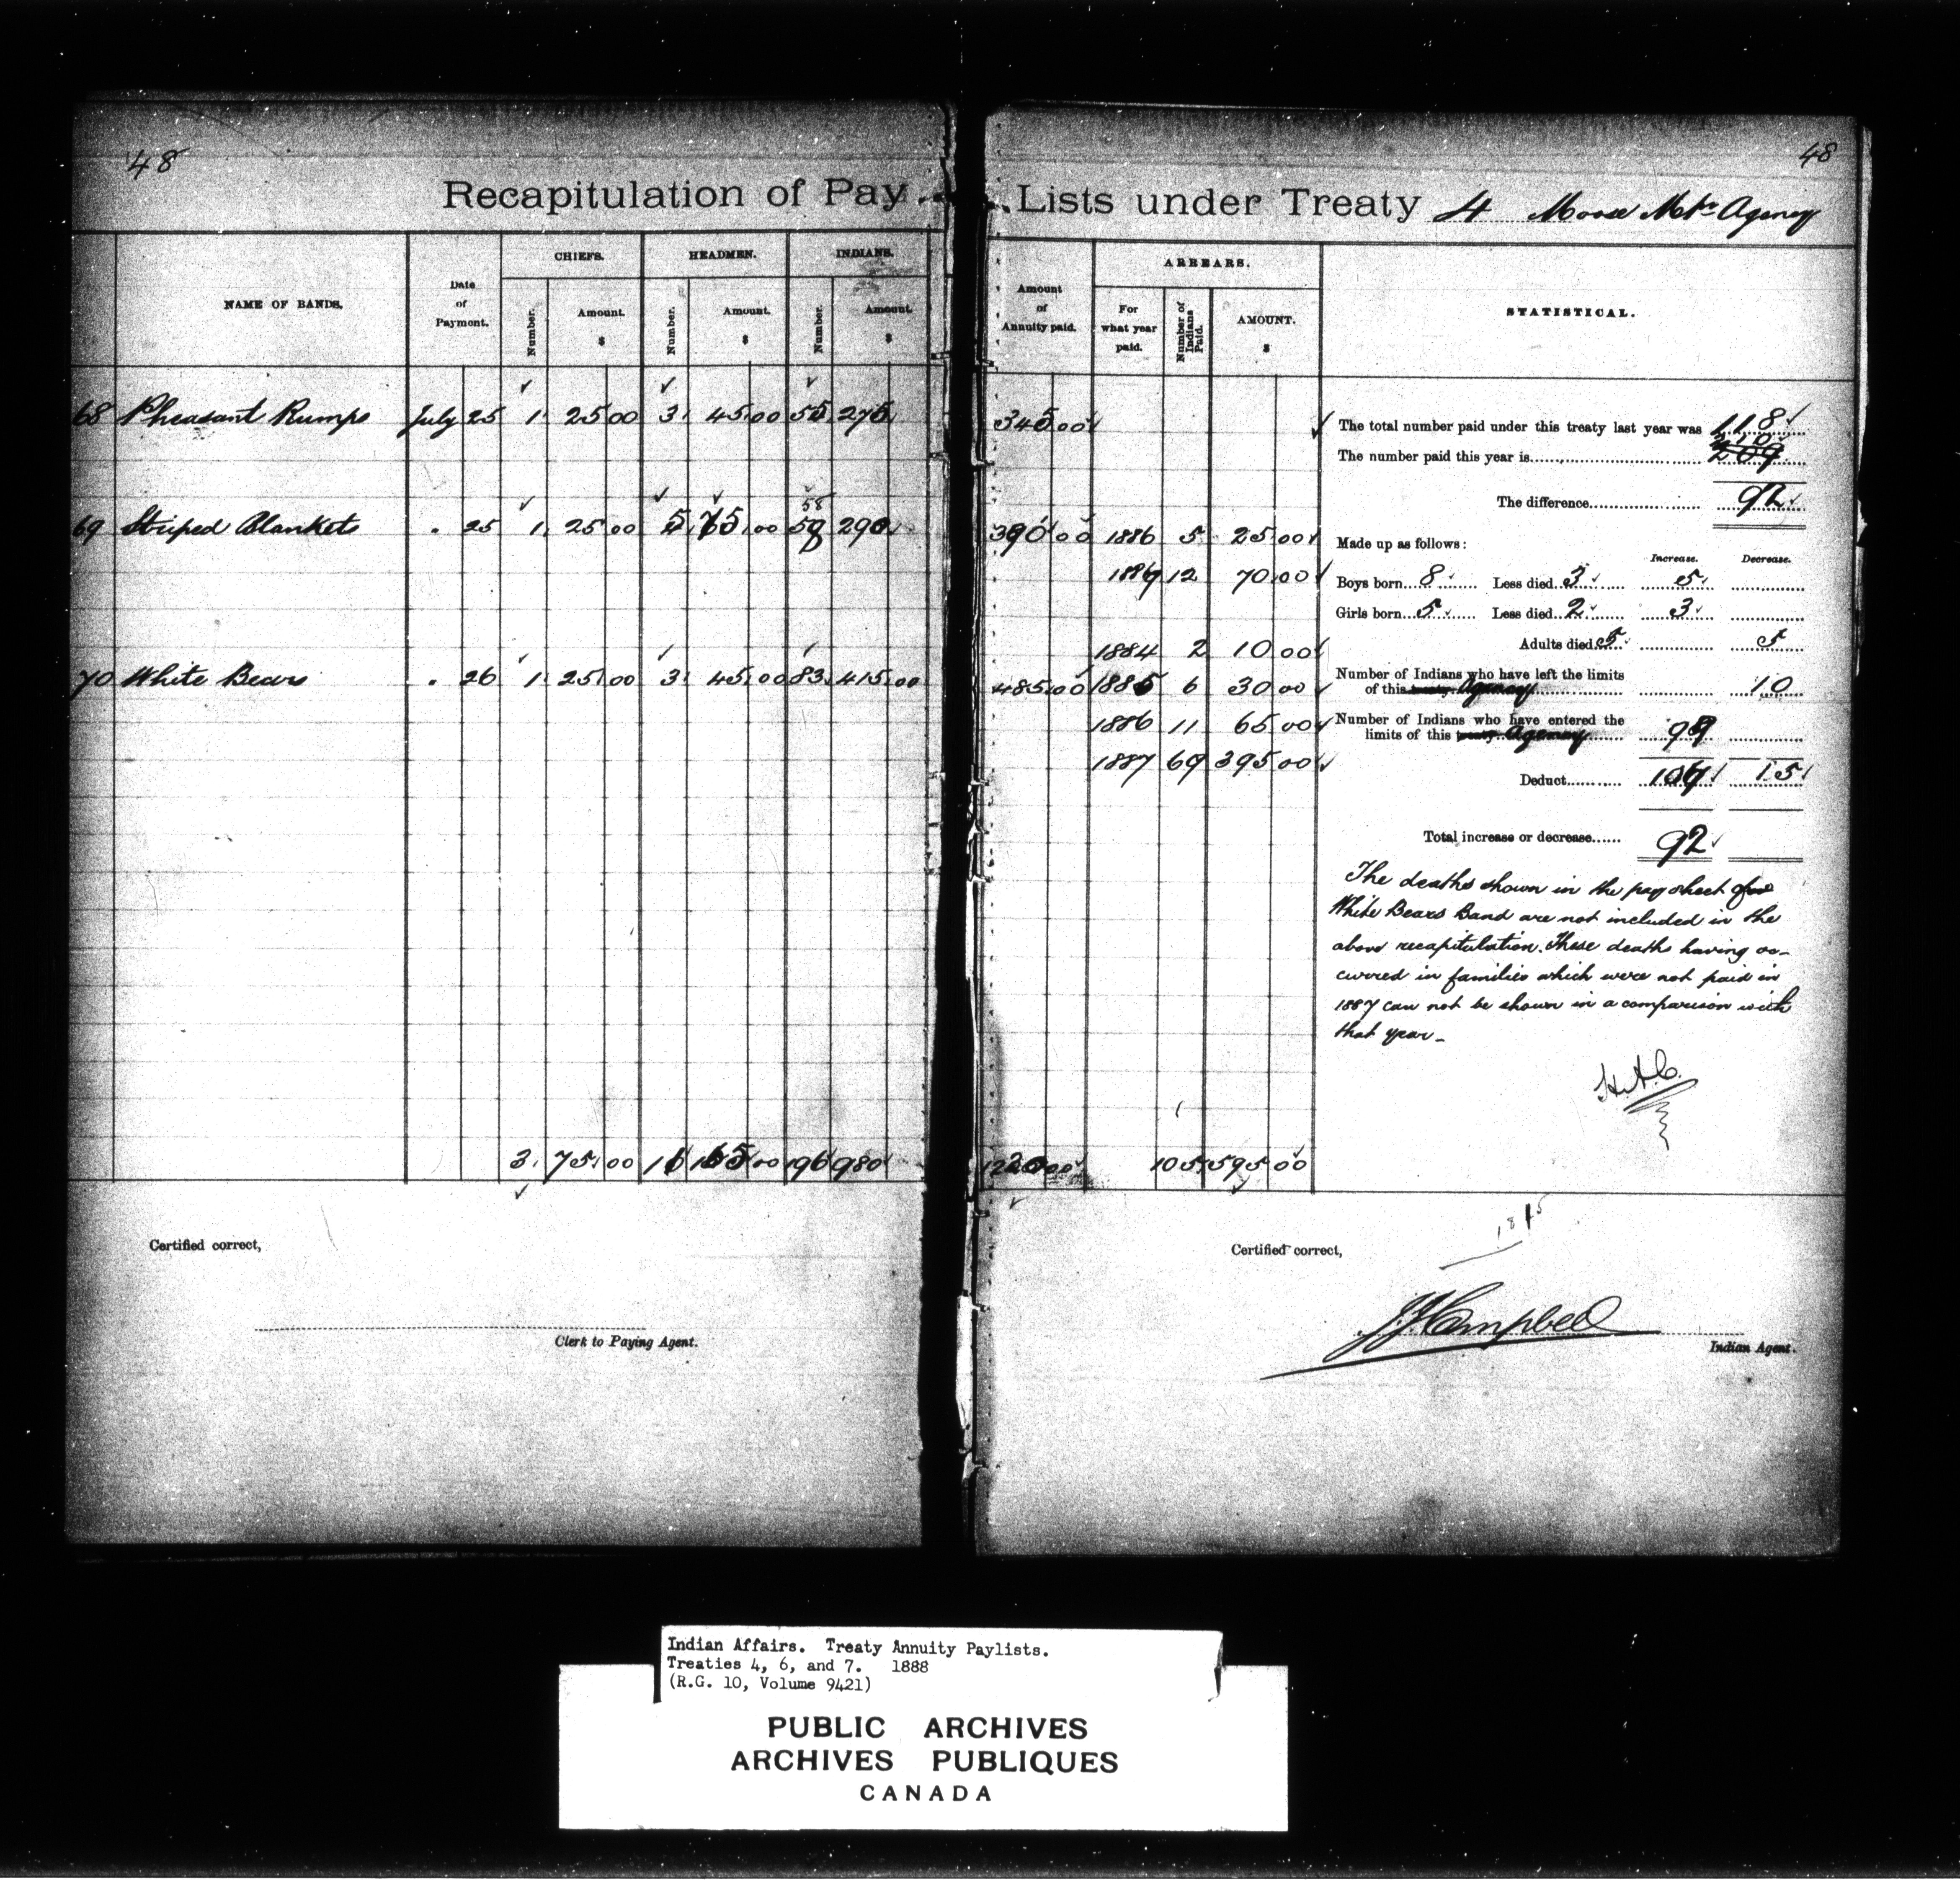 48
48
Recapitulation of Pay Lists under Treaty 4 Moose Mtn Agency
NAME OF BANDS.
Date of Payment.
CHIEFS.
HEADMEN.
INDIANS.
Number.
Amount. $
Number.
Amount. $
Number.
Amount. $
Amount of Annuity paid.
ARREARS.
For what year paid.
Number of Indians Paid.
AMOUNT. $
STATISTICAL.
68 Pheasant Rumps July 25 1 25 00 3 45 00 55 275 345 00
69 Striped Blankets " 25 1 25 00 5 75 00 58 290 390 00 1886 5 25 00
1887 12 70 00
1884 2 10 00
70 White Bears " 26 1 25 00 3 45 00 83 415 00 485 00 1885 6 30 00
1886 11 65 00
1887 69 395 00
3 75 00 11 165 00 196 980 1220 00 105 595 00
The total number paid under this treaty last year was 118
The number paid this year is 210
The difference 92
Made up as follows:
Increase. Decrease.
Boys born 8 Less died 3 5
Girls born 5 Less died 2 3
Adults died 5 5
Number of Indians who have left the limits
of this treaty Agency 10
Number of Indians who have entered the
limits of this treaty Agency 99
Deduct 107 15
Total increase or decrease 92
The deaths shown in the pay sheet of
White Bears Band are not included in the
above recapitulation. These deaths having oc-
curred in families which were not paid in
1887 can not be shown in a comparison with
that year_
Certified correct,
Clerk to Paying Agent.
Certified correct,
J.J. Campbell
Indian Agent.
Indian Affairs. Treaty Annuity Paylists.
Treaties 4, 6, and 7. 1888
(R.G. 10, Volume 9421)
PUBLIC ARCHIVES
ARCHIVES PUBLIQUES
CANADA